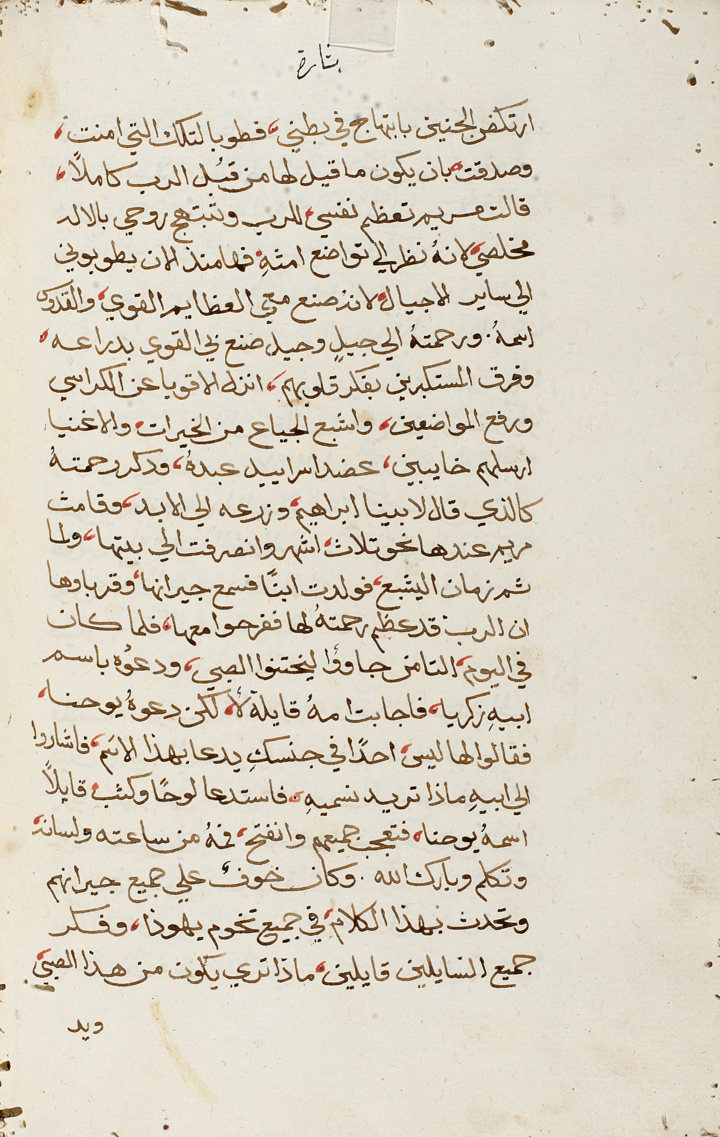 بشارة
ارتكض الجنين بابتهاج في بطني، فطوبا لتلك التي امنت،
وصدقت، بان يكون ما قيل لها من قبُل الرب كاملاً،
قالت مريم تعظم نفسي، للرب وتبتهج روحي بالاله
مخلصي، لانهُ نظر الي تواضع امتهِ، فها منذ الان يطوبوني
الي ساير الاجيال، لانه صنع معي العظايم القوي، والقدوس
اسمهُ. ورحمتهُ الي جيلٍ وجيل صنع لي القوي بدراعه،
وفرق المستكبرين بفكر قلوبهم، انزل الاقويا عن الكراسي
ورفع المواضعين، واشبع الجياع من الخيرات، والاغنيا
ارسلهم خايبين، عضد اسراييل عبدهُ، ودكر رحمتهُ
كالذي قال لابينا ابراهيم، وزرعه الي الابد، وقامت
مريم عندها نحو تلات، اشهر وانصرفت الي بيتها، ولما
تم زمان اليشبع، فولدت ابنًا فسمع جيرانها، وقرباوها
ان الرب، قد عظم رحمتهُ لها ففرحوا معها، فلما كان
في اليوم، التامن جاووا ليختنوا الصبي، ودعوُه باسم
ابيهِ زكريا، فاجابت امهُ قايلة لا، لكن دعوهُ يوحنا،
فقالوا لها ليس، احدًا في جنسكِ يدعا بهذا الاسم، فاشاروا
الي ابيهِ ماذا تريد نسميهِ، فاستدعا لوحًا وكتب، قايلاً
اسمهُ يوحنا، فتعجب جميعهم وانفتح، فمهُ من ساعته ولسانه
وتكلم وبارك الله. وكان خوفٌ علي جميع جيرانهم
وتحدث بهذا الكلام، في جميع تخوم يهوذا، وفكر
جميع السايلين قايلين، ماذا تري يكون من هذا الصبي،
ويد